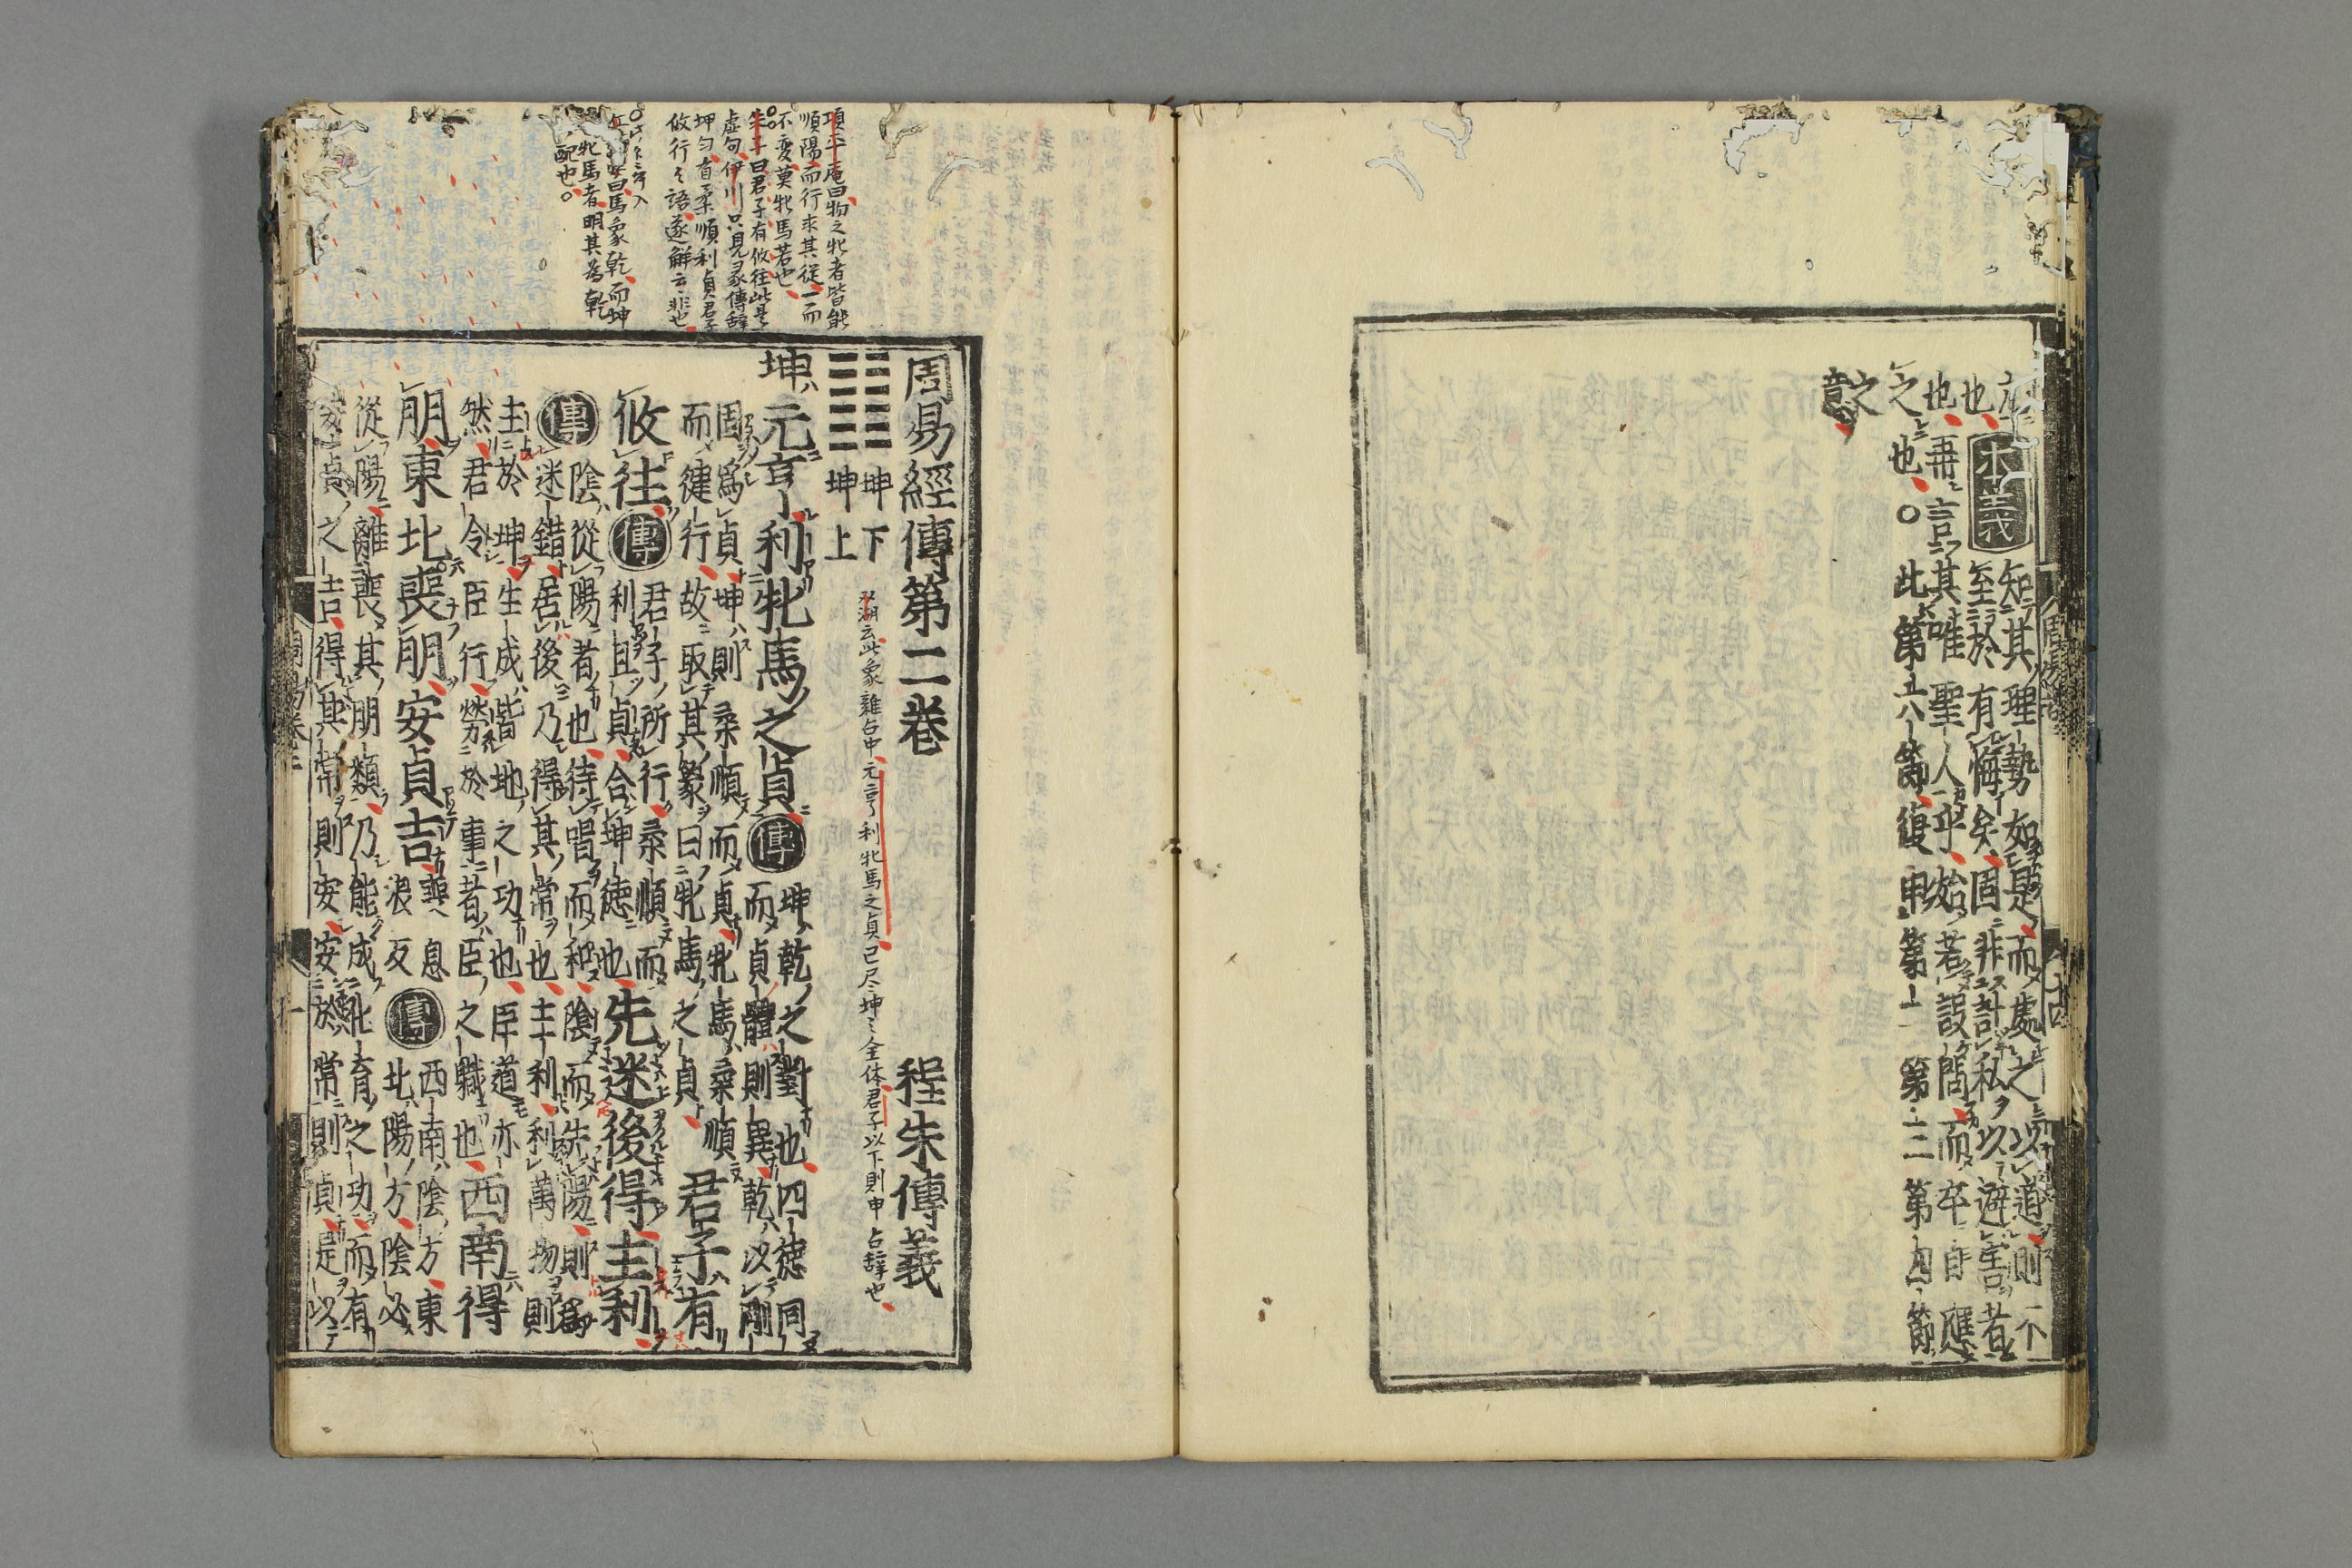 本義
知其理勢如是而處之以道則不
至於有悔矣固非計私以避害者
也再言其唯聖人乎始若設問而卒自應
之也○此第六節復申第一第二第三第四節
之意
周易經傳第二卷 程朱傳義
坤下
坤上
双湖云此象雜占中元亨利牝馬之貞已尽坤之全体君子以下則申占辞也
坤元亨利牝馬之貞
傳
坤乾之對也四德同
而貞體則異乾以剛
固爲貞坤則柔順而貞牝馬柔順
而健行故取其象曰牝馬之貞
君子有
攸往
傳
君子所行柔順而
利且貞合坤德也
先迷後得主利
傳
陰從陽者也待唱而和陰而先陽則爲
迷錯居後乃得其常也主利利萬物則
主於坤生成皆地之功也臣道亦
然君令臣行勞於事者臣之職也
西南得
朋東北喪朋安貞吉
喪息
浪反
傳
西南陰方東
北陽方陰必
從陽離喪其朋類乃能成化育之功而有
安貞之吉得其常則安安於常則貞是以
項平庵曰物之牝者皆能
順陽而行求其從一而
不変莫牝馬若也
○朱子曰君子有攸往此是
虚句伊川只見彖傳辞
坤勻有柔順利貞君子
攸行之語遂解云非也
曰馬象乾而坤
牝馬者明其為乾
配也○
周易卷二 一